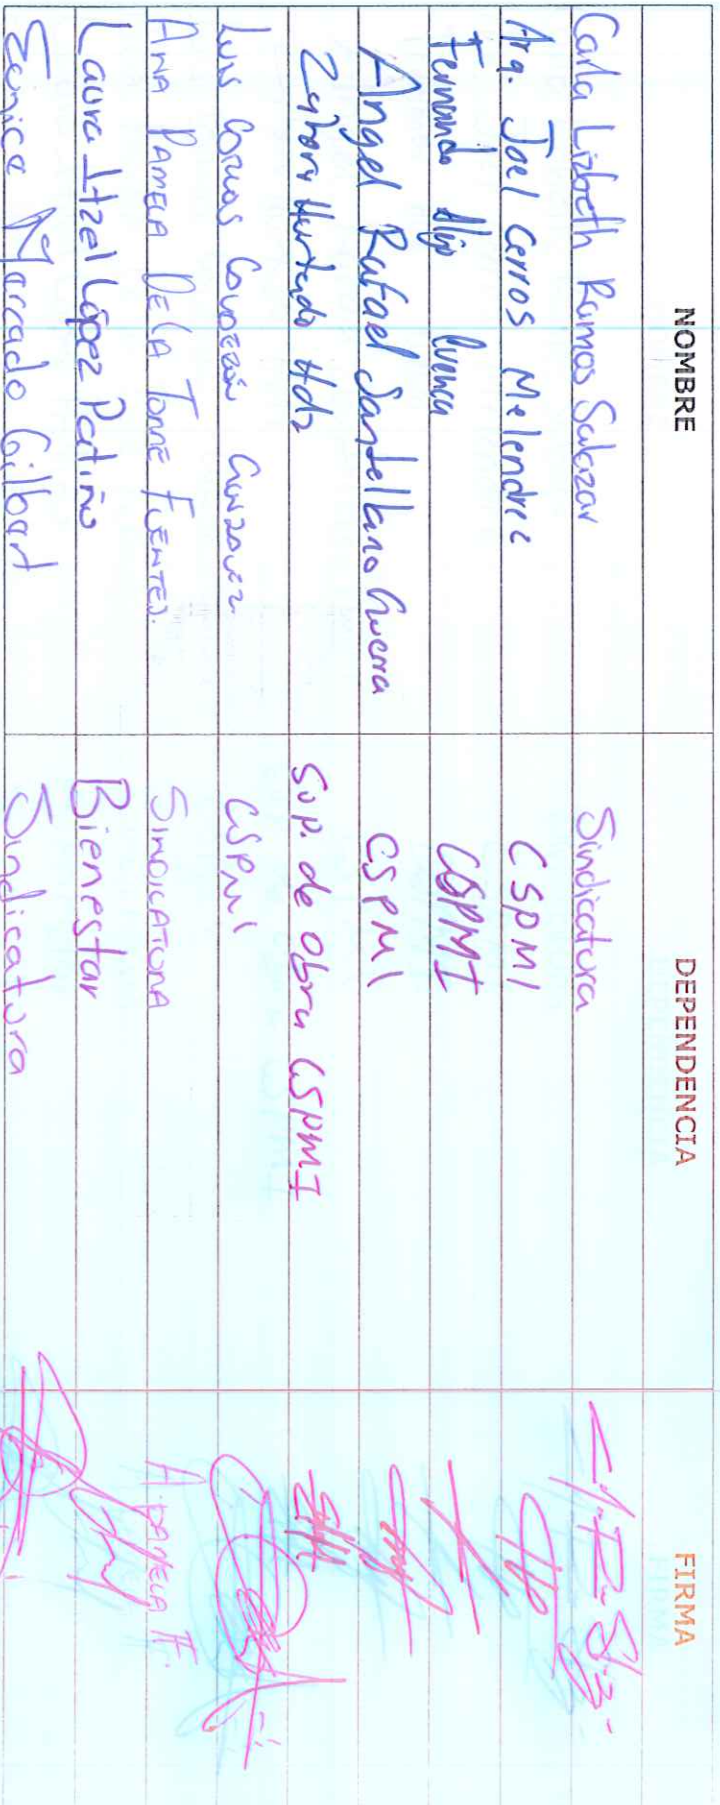 NOMBRE DEPENDENCIA FIRMA
Carla Lizbeth Ramos Salazar Sindicatura
Arq. Joel Cerros Melendrez CSPMI
Fernando Cuenca CSPMI
Angel Rafael Santellano Guerra CSPMI
Hurtado Hdz Sup. de Obra CSPMI
Luis González CSPMI
ANA PAMELA DE LA TORRE FUENTES. SINDICATURA A. PAMELA TF.
Laura Itzel López Patiño Bienestar
Eunice Mercado Gilbert Sindicatura